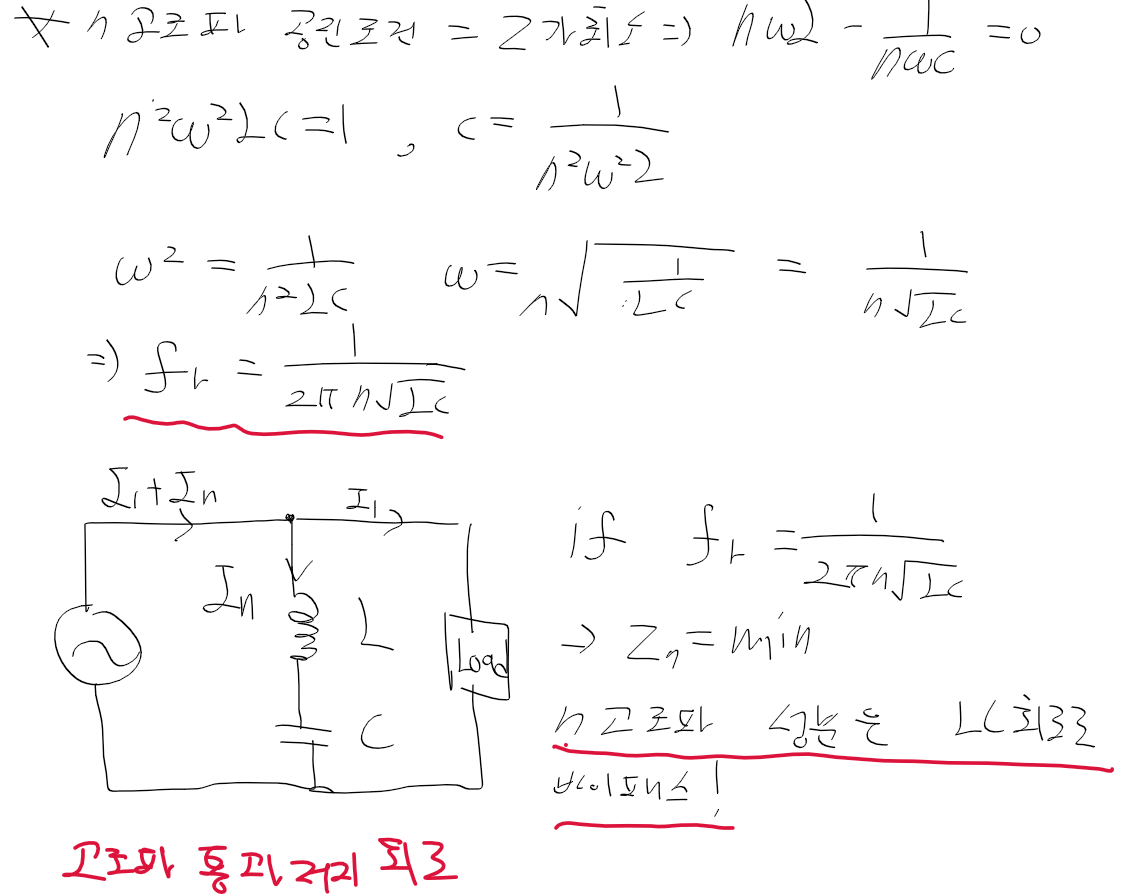 * n 고조파 공진조건 = Z가 최소 => nωL - 1/nωC = 0
n²ω²LC = 1 , C = 1/n²ω²L
ω² = 1/n²LC ω = n√1/LC = 1/n√LC
=> fr = 1/2πn√LC
I₁+In I₁
In L Load
C
if fr = 1/2πn√LC
→ Zn = min
n고조파 성분은 LC회로로
바이패스!
고조파 통과 회로